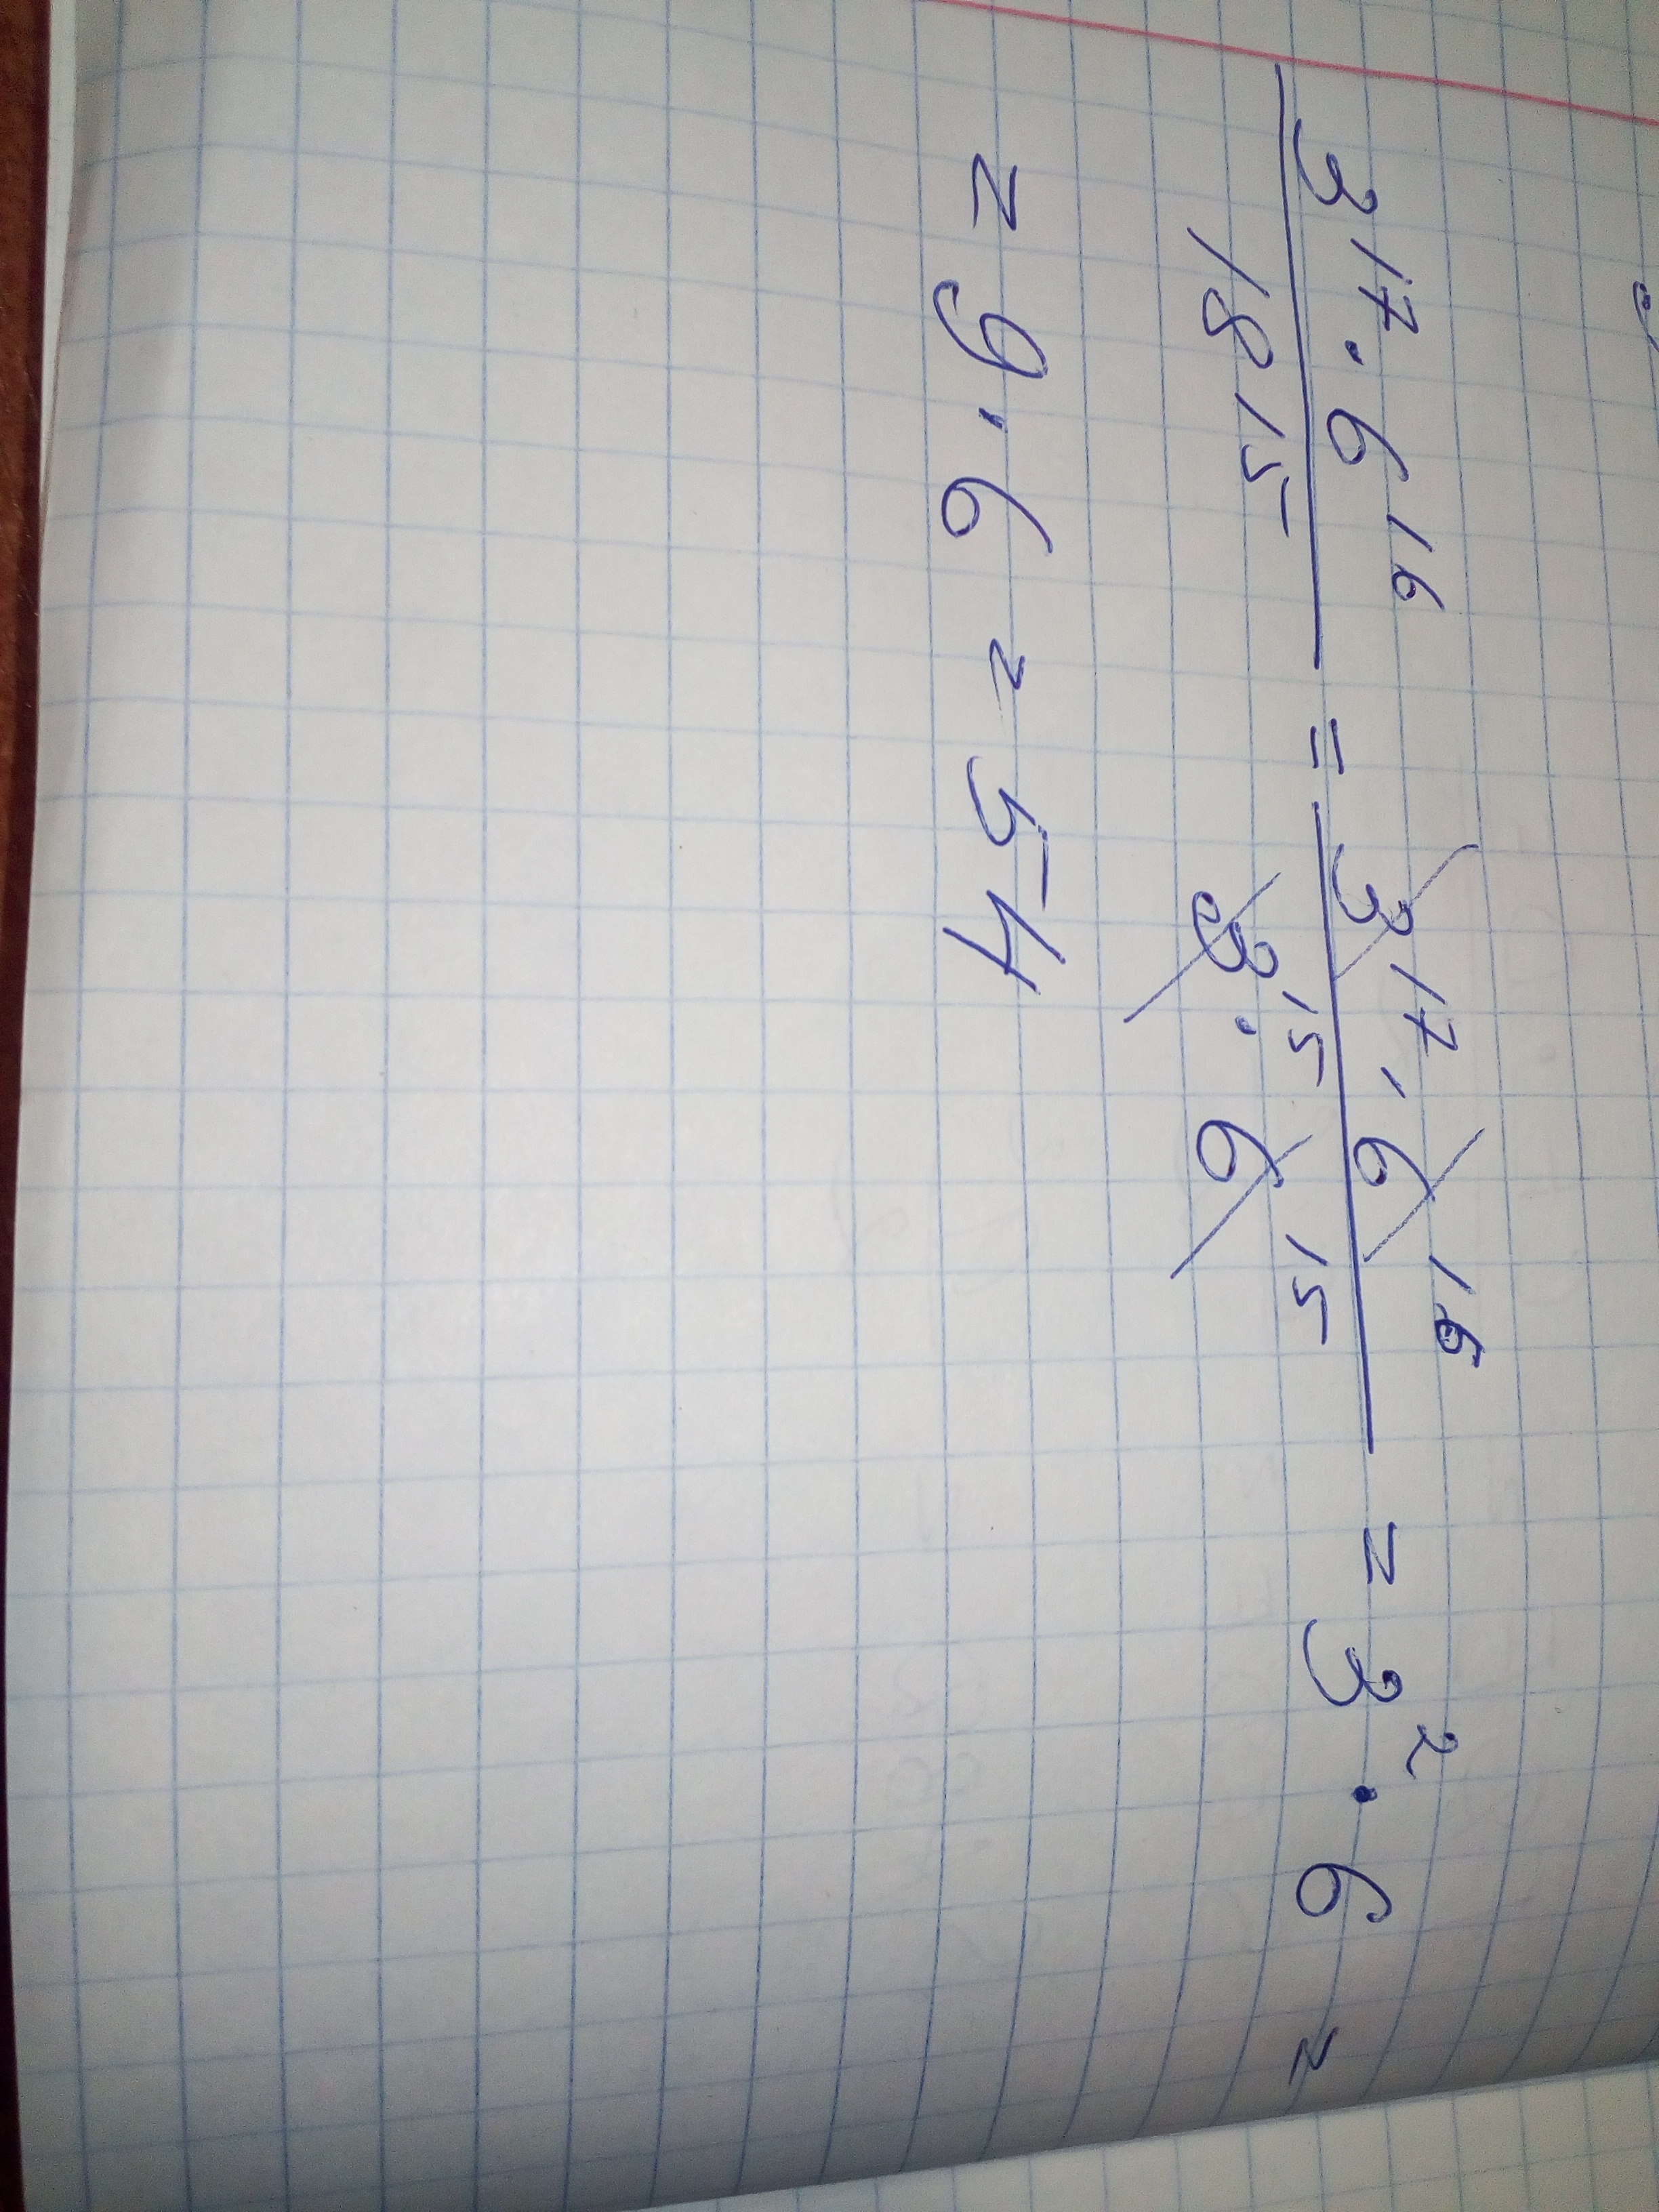 3¹⁷ · 6¹⁶ / 18¹⁵ = 3¹⁷ · 6¹⁶ / 3¹⁵ · 6¹⁵ = 3² · 6 =
= 9 · 6 = 54